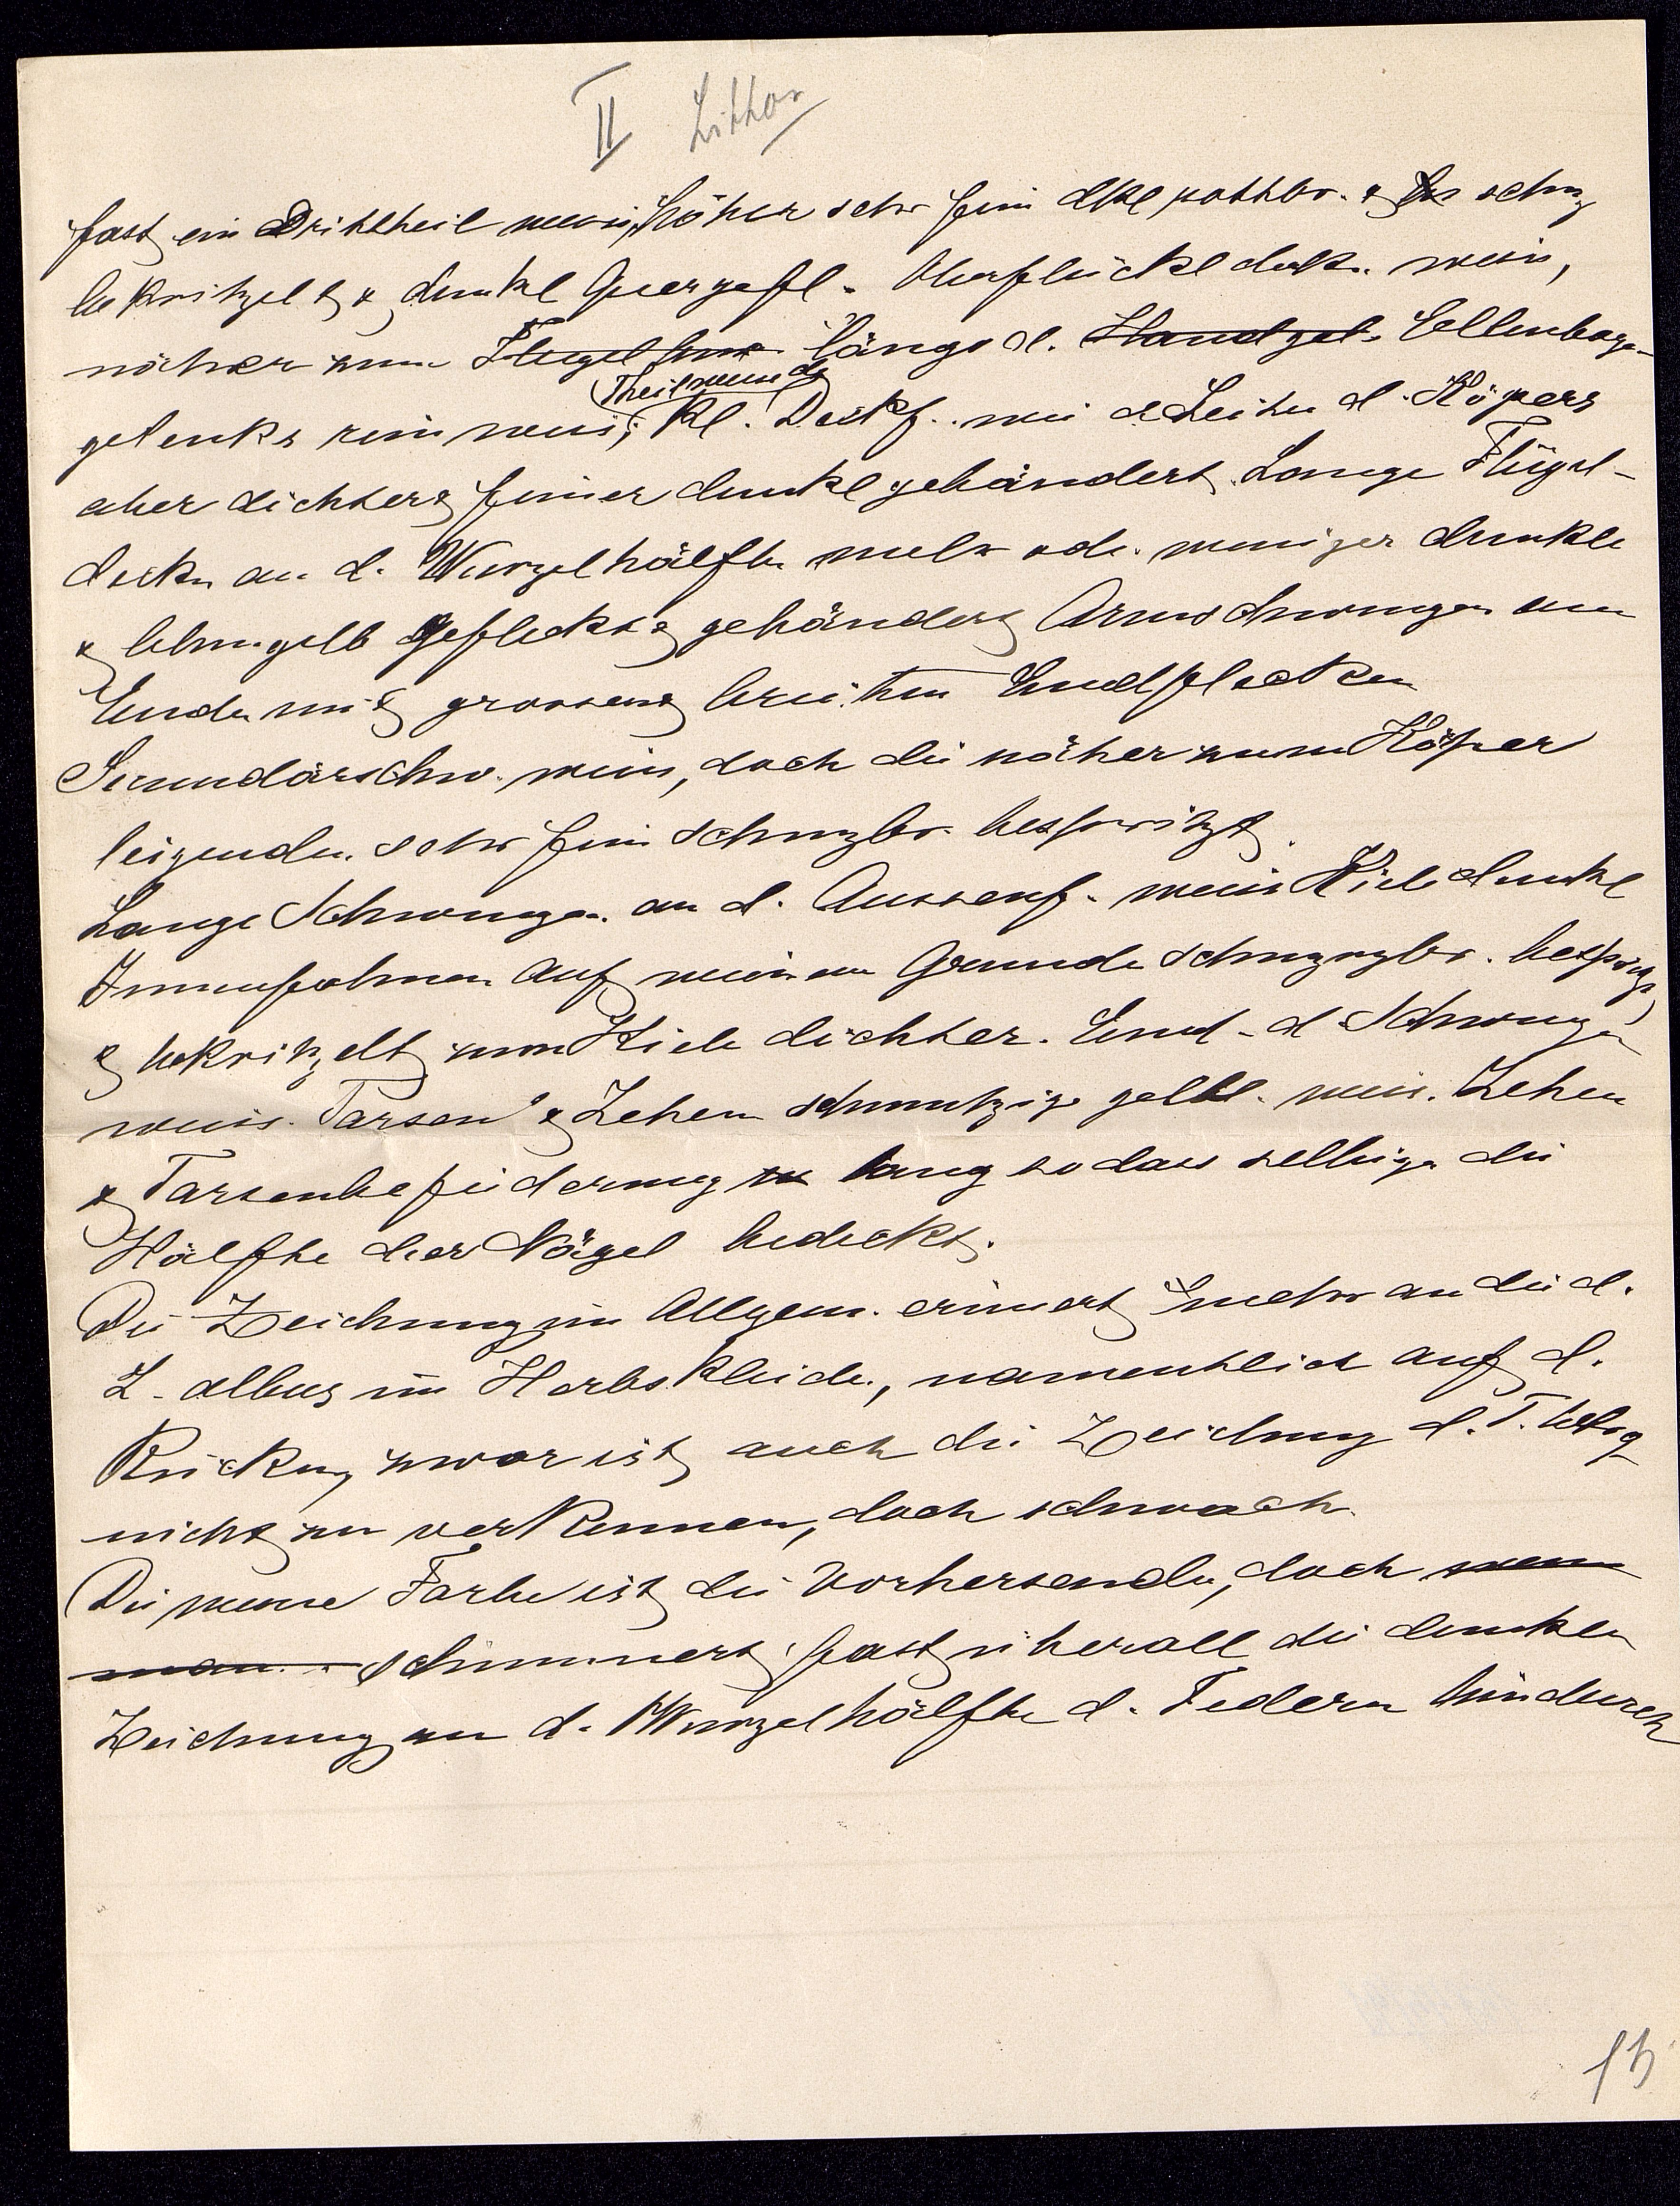 II Litho
fast ein Drittheil weiss, höher sehr fein dkl rothbr. & schw
bekritzelt & dunkel Quergefl. Oberflückeldeck. weiss,
näher zum Flügelbug längs d. Handgel. Ellenboge-
gelenks rein weiss, Kl. Deckf. wie d. Seiten d. Köpers
(Theilweise)
aber dichter & feiner dunkel gebändert. Lange Flügel-
decken an d. Wurzelhälfte mehr oder weniger dunkle
& lehmgelb gefleckt & gebändert Armschwingen am
Ende mit grossen & breiten Endflecken
Secundärschw. weiss, doch die näher zum Köper
leigenden sehr fein schwzbr. bespritzt.
Lange Schwingen an d. Aussenf. weiss Kiele dunkel
Innenfahnen auf weissem Grunde schwzbr. bespritzt
& bekritzelt zum Kiele dichter. End d. Schwingen
weiss. Tarsen & Zehen schmutzig gelbl. weiss. Zehen
& Tarsenbefiederung lang so dass selbige die
Hälfte der Nägel bedeckt.
Die Zeichnung im Allgem. erinert mehr an die d.
L. albus im Herbskleide, namentlich auf d.
Rücken, zwar ist auch die Zeichnung d. T.
nicht zu verkennen, doch schwach.
Die weisse Farbe ist die Vorhersende, doch wenn
man schimmert fast überall die dunkle
Zeichnung an d. Wurzelhälfte d. Federn hindurch